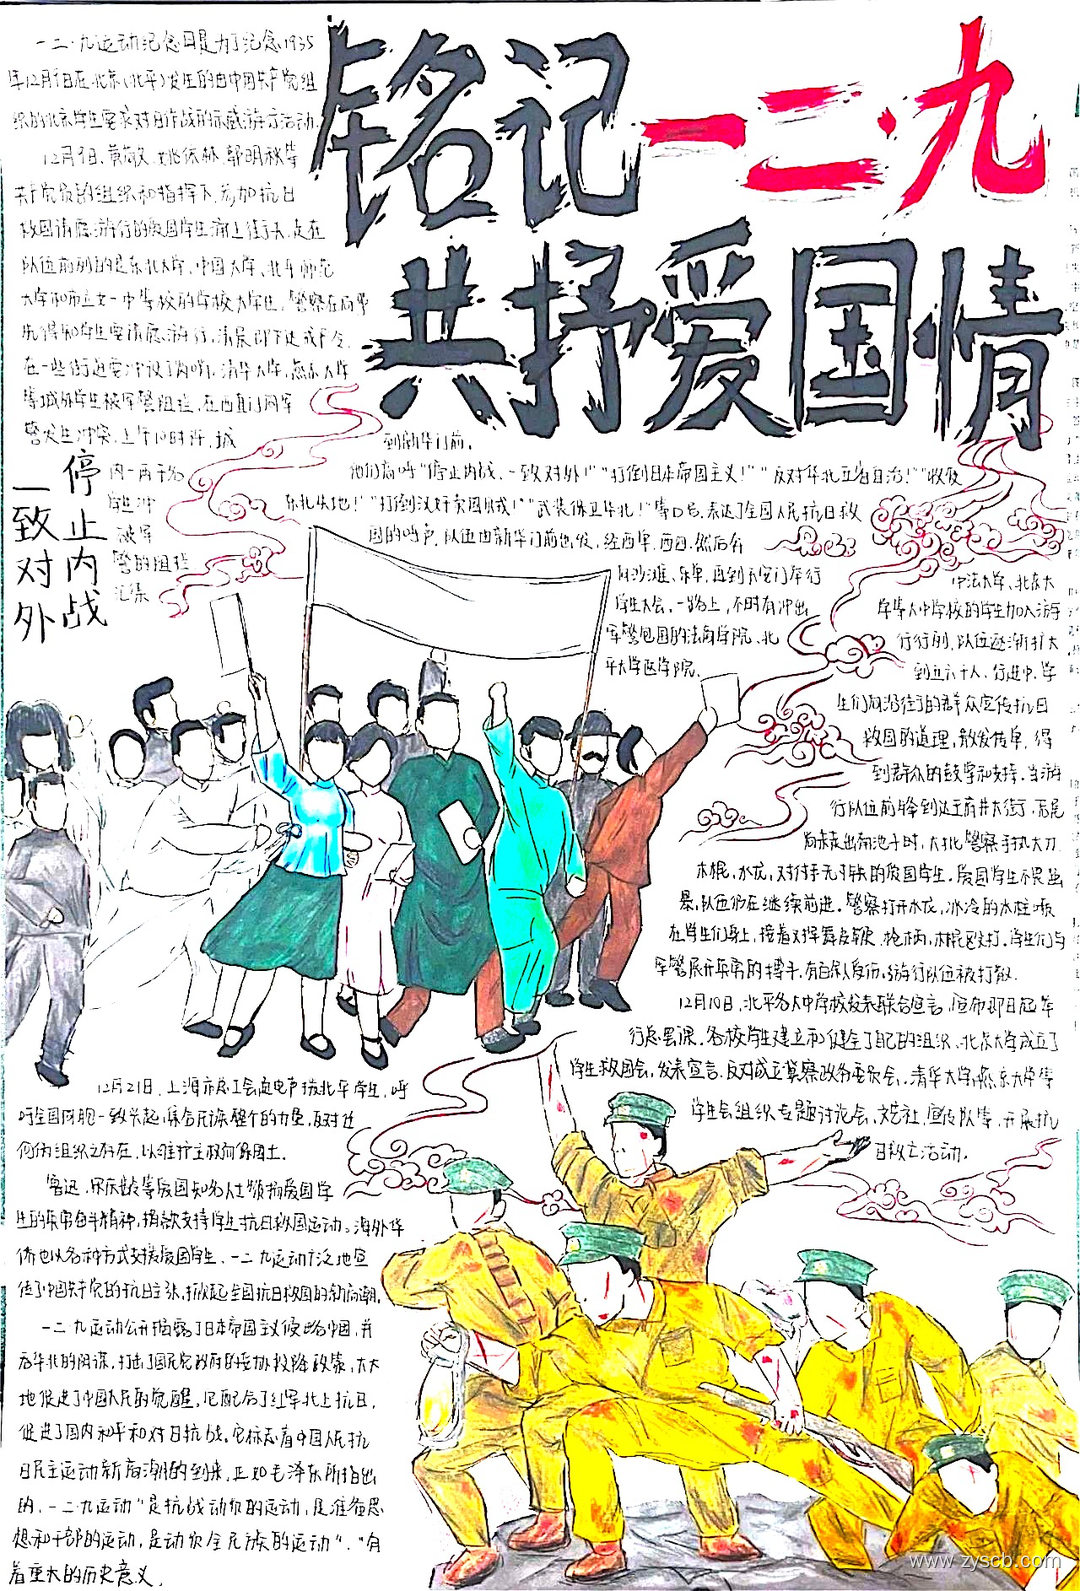 铭记一二·九
共抒爱国情
一二·九运动纪念日是为了纪念1935
年12月9日在北京(北平)发生的由中国共产党组
织的北京学生要求对日作战的示威游行活动.
12月9日,黄敬、姚依林、郭明秋等
共产党员的组织和指挥下,参加抗日
救国请愿游行的爱国学生涌上街头,走在
队伍前列的是东北大学、中国大学、北平师范
大学和市立女一中等校的学校大学生。警察在局
先得知学生要请愿游行,清晨即下达戒严令,
在一些街道要冲设了岗哨,清华大学,燕京大学
等城外学生被军警阻拦,在西直门同军
警发生冲突,上午10时许,城
内一两千名
学生冲
破军
警的阻拦
汇集
到新华门前,
他们高呼"停止内战,一致对外!""打倒日本帝国主义!""反对华北五省自治!""收复
东北失地!""打倒汉奸卖国贼!""武装保卫华北!"等口号,表达了全国人民抗日救
国的呼声.队伍由新华门前出发,经西单、西四,然后奔
向沙滩、东单,再到天安门举行
学生大会,一路上,不时有冲出
军警包围的法商学院、北
平大学医学院、
中法大学、北京大
学等大中学校的学生加入游
行行列,队伍逐渐扩大
到五六千人,行进中,学
生们向沿街的群众宣传抗日
救国的道理,散发传单,得
到群众的鼓掌和支持.当游
行队伍前锋到达王府井大街,后尾
尚未走出南池子时,大批警察手执大刀
木棍,水龙,对付手无寸铁的爱国学生.爱国学生不畏强
暴,队伍仍在继续前进.警察打开水龙,冰冷的水柱喷
在学生们身上,接着又挥舞皮鞭、枪柄,木棍殴打.学生们与
军警展开英勇的搏斗,有百余人受伤,游行队伍被打散.
12月10日,北平各大中学校发表联合宣言,宣布即日起举
行总罢课.各校学生建立和健全了自己的组织、北京大学成立了
学生救国会,发表宣言.反对成立冀察政务委员会,清华大学,燕京大学等
学生会组织专题讨论会,文艺社,宣传队等,开展抗
日救亡活动.
停止内战
一致对外
12月21日,上海市总工会通电声援北平学生,呼
吁全国同胞一致兴起,集合民族整个的力量,反对任
何伪组织之存在,以维护主权而保国土.
鲁迅,宋庆龄等爱国知名人士赞扬爱国学
生的英勇奋斗精神,捐款支持学生抗日救国运动。海外华
侨也以各种方式支援爱国学生、一二九运动广泛地宣
传了中国共产党的抗日主张,掀起全国抗日救国的新高潮.
一二·九运动公开揭露了日本帝国主义侵略中国,并
吞华北的阴谋,打击了国民党政府的妥协投降政策,大大
地促进了中国人民的觉醒,它配合了红军北上抗日,
促进了国内和平和对日抗战.它标志着中国人民抗
日民主运动新高潮的到来,正如毛泽东所指出
的,一二·九运动"是抗战动员的运动,是准备思
想和干部的运动,是动员全民族的运动","有
着重大的历史意义.
www.zyscb.com